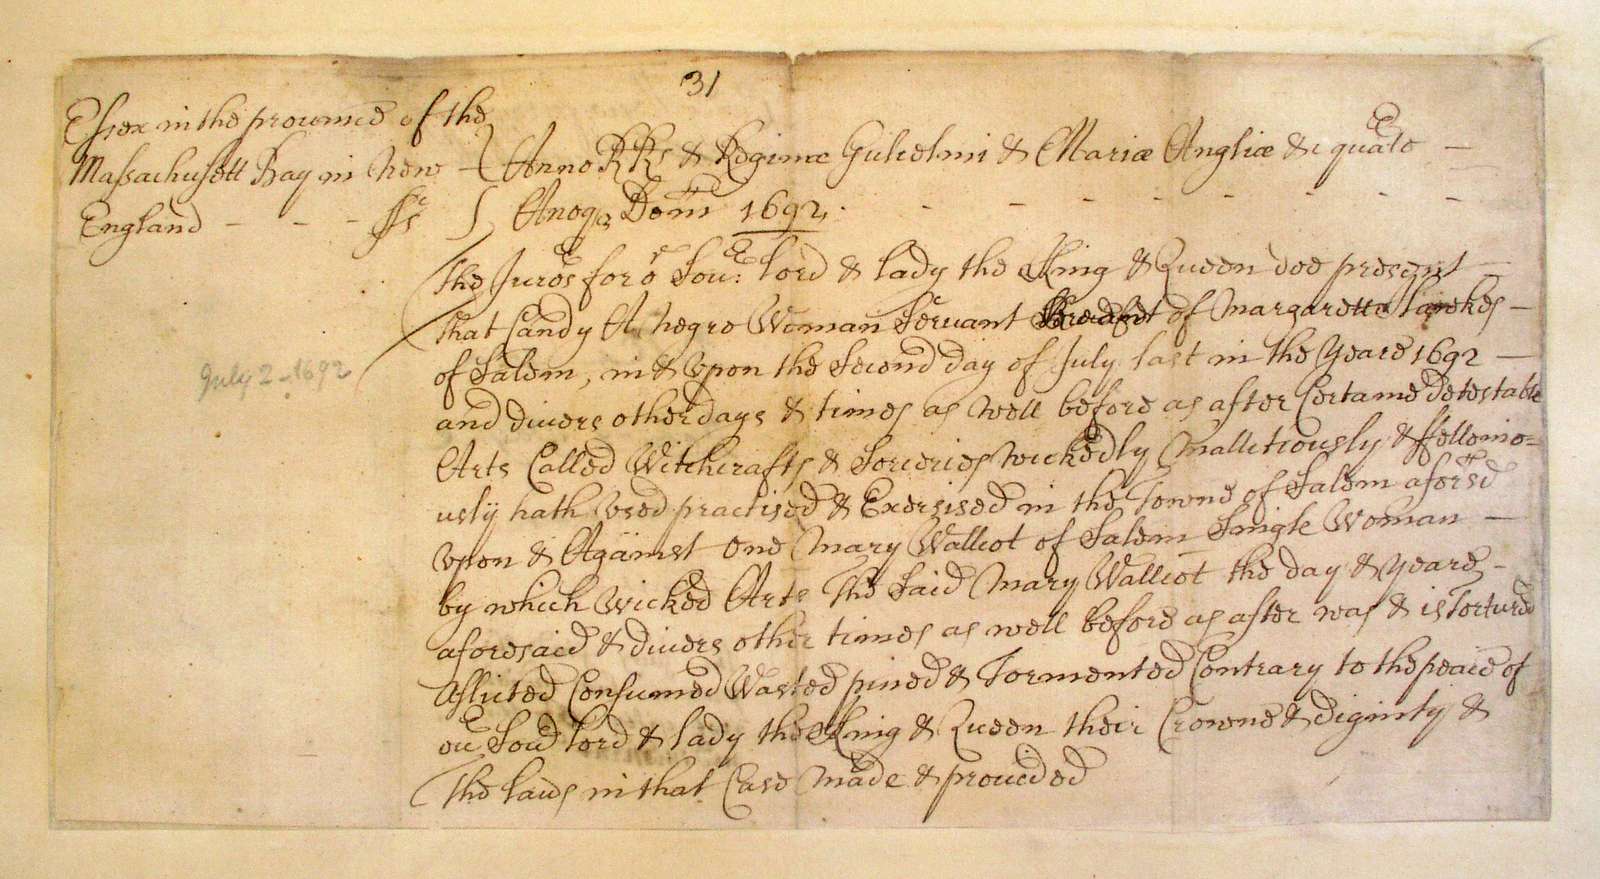 31
Essex in the prouince of the
Massachusett Bay in New Anno RRs & Reginæ Gulielmi & Mariæ Angliæ &c quarto
England - - - ss Anoq Dom 1692
The Juro{rs} for o{r} Sou: lord & lady the King & Queen doe present
that Candy A negro Woman Seruant of Margarett Hawkes
of Salem, in & vpon the Second day of July last in the Yeare 1692
July 2 - 1692
and diuers other days & times as well before as after Certaine detestable
Arts Called Witchcrafts & Sorceries wickedly Mallitiously & ffellonio=
usly hath vsed practised & Exersised in the Towne of Salem afores{d}
vpon & Against One Mary Wallcot of Salem Single Woman
by which wicked Arts The Said Mary Wallcot the day & yeare
aforesaid & diuers other times as well before as after was & is Tortured
Aflicted Consumed Wasted pined & Tormented Contrary to the peace of
ou{r} Sou{r} lord & lady the King & Queen their Crowne & dignity &
The laws in that Case made & prouided